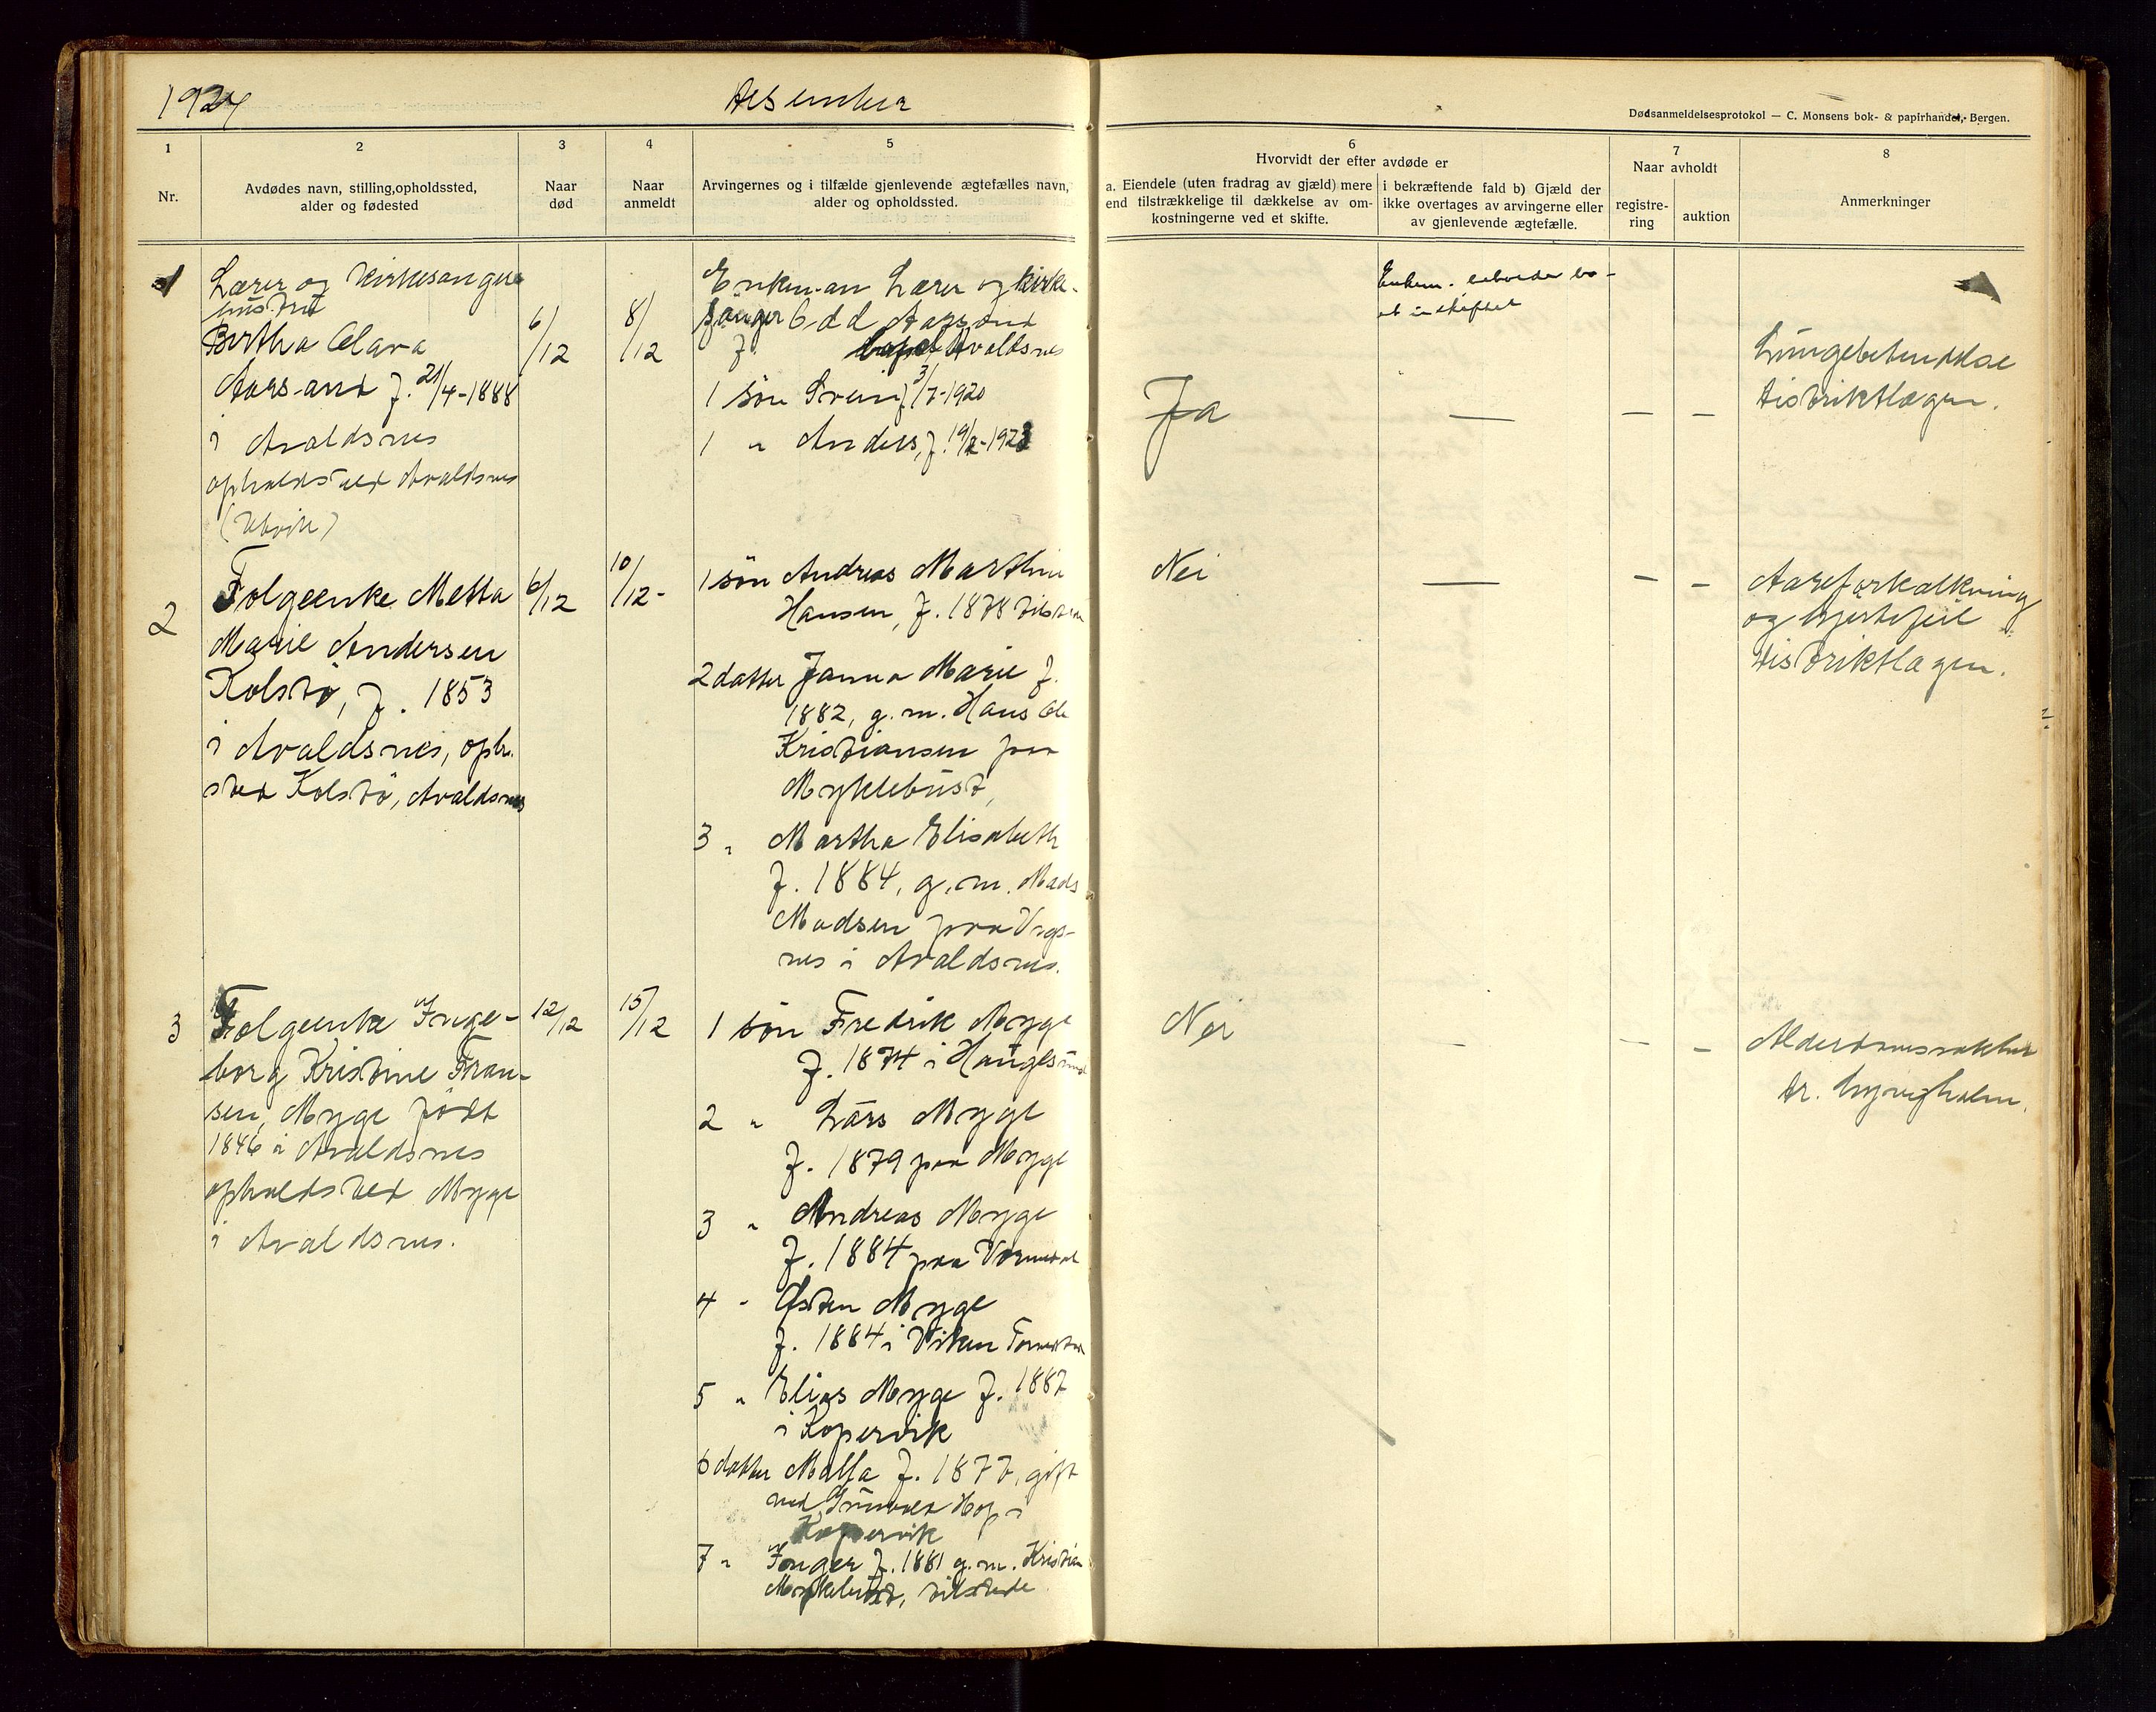 1924
Desember
Dødsanmeldelsesprotokol — C. Monsens bok- & papirhandel, Bergen.
1
2
3
4
5
6
7
8
Nr.
Avdødes navn, stilling, opholdssted,
alder og fødested
Naar
død
Naar
anmeldt
Arvingernes og i tilfælde gjenlevende ægtefælles navn,
alder og opholdssted.
Hvorvidt der efter avdøde er
a. Eiendele (uten fradrag av gjæld) mere
end tilstrækkelige til dækkelse av om-
kostningerne ved et skifte.
i bekræftende fald b) Gjæld der
ikke overtages av arvingerne eller
av gjenlevende ægtefælle.
Naar avholdt
registre-
ring
auktion
Anmerkninger
1
Lærer og Kirkesanger
hustru
Bertha Clara
Aarsand f. 21/4-1888
i Avaldsnes
opholdsted Avaldsnes
(Utvik)
6/12
8/12
Enkeman Lærer og kirke-
sanger Odd Aarsand
f. Avaldsnes
1 søn Svein f 3/7-1920
1 " Anders, f. 19/2-1923
Ja
Enkem. beholder bo-
et uskiftet
—
— —
Lungebetendelse
Distriktlægen.
2
Folgeenke Metta
Marie Andersen
Kolstø, f. 1853
i Avaldsnes, oph.
sted Kolstø, Avaldsnes
6/12
10/12-
1 søn Andreas Marthin
Hansen, f. 1878
2 datter Janna Marie f.
1882, g. m. Hans Ole
Kristiansen paa
Myklebust,
3 " Martha Elisabeth
f. 1884, g. m. Mads
Madsen paa Vigs-
nes i Avaldsnes.
Nei
—
— —
Aareforkalkning
og hjertefeil
Distriktlægen.
3
Folgeenke Inge-
borg Kristine Fran-
sen Myge født
1846 i Avaldsnes
opholdsted Myge
i Avaldsnes.
12/12
15/12
1 søn Fredrik Myge
f. 1874 i Haugesund
2 " Lars Myge
f. 1879 paa Myge
3 " Andreas Myge
f. 1884 paa Vormedal
4 " Østen Myge
f. 1884 i Viken Torvestad
5 " Elias Myge f. 1887
i Kopervik
6 datter Malla f. 1877, gift
med Gunvald Hop i
Kopervik
7 " Inger f. 1881 g. m. Kristian
Myklebust, tilstede
Nei
—
— —
Alderdomssvakhet
dr.